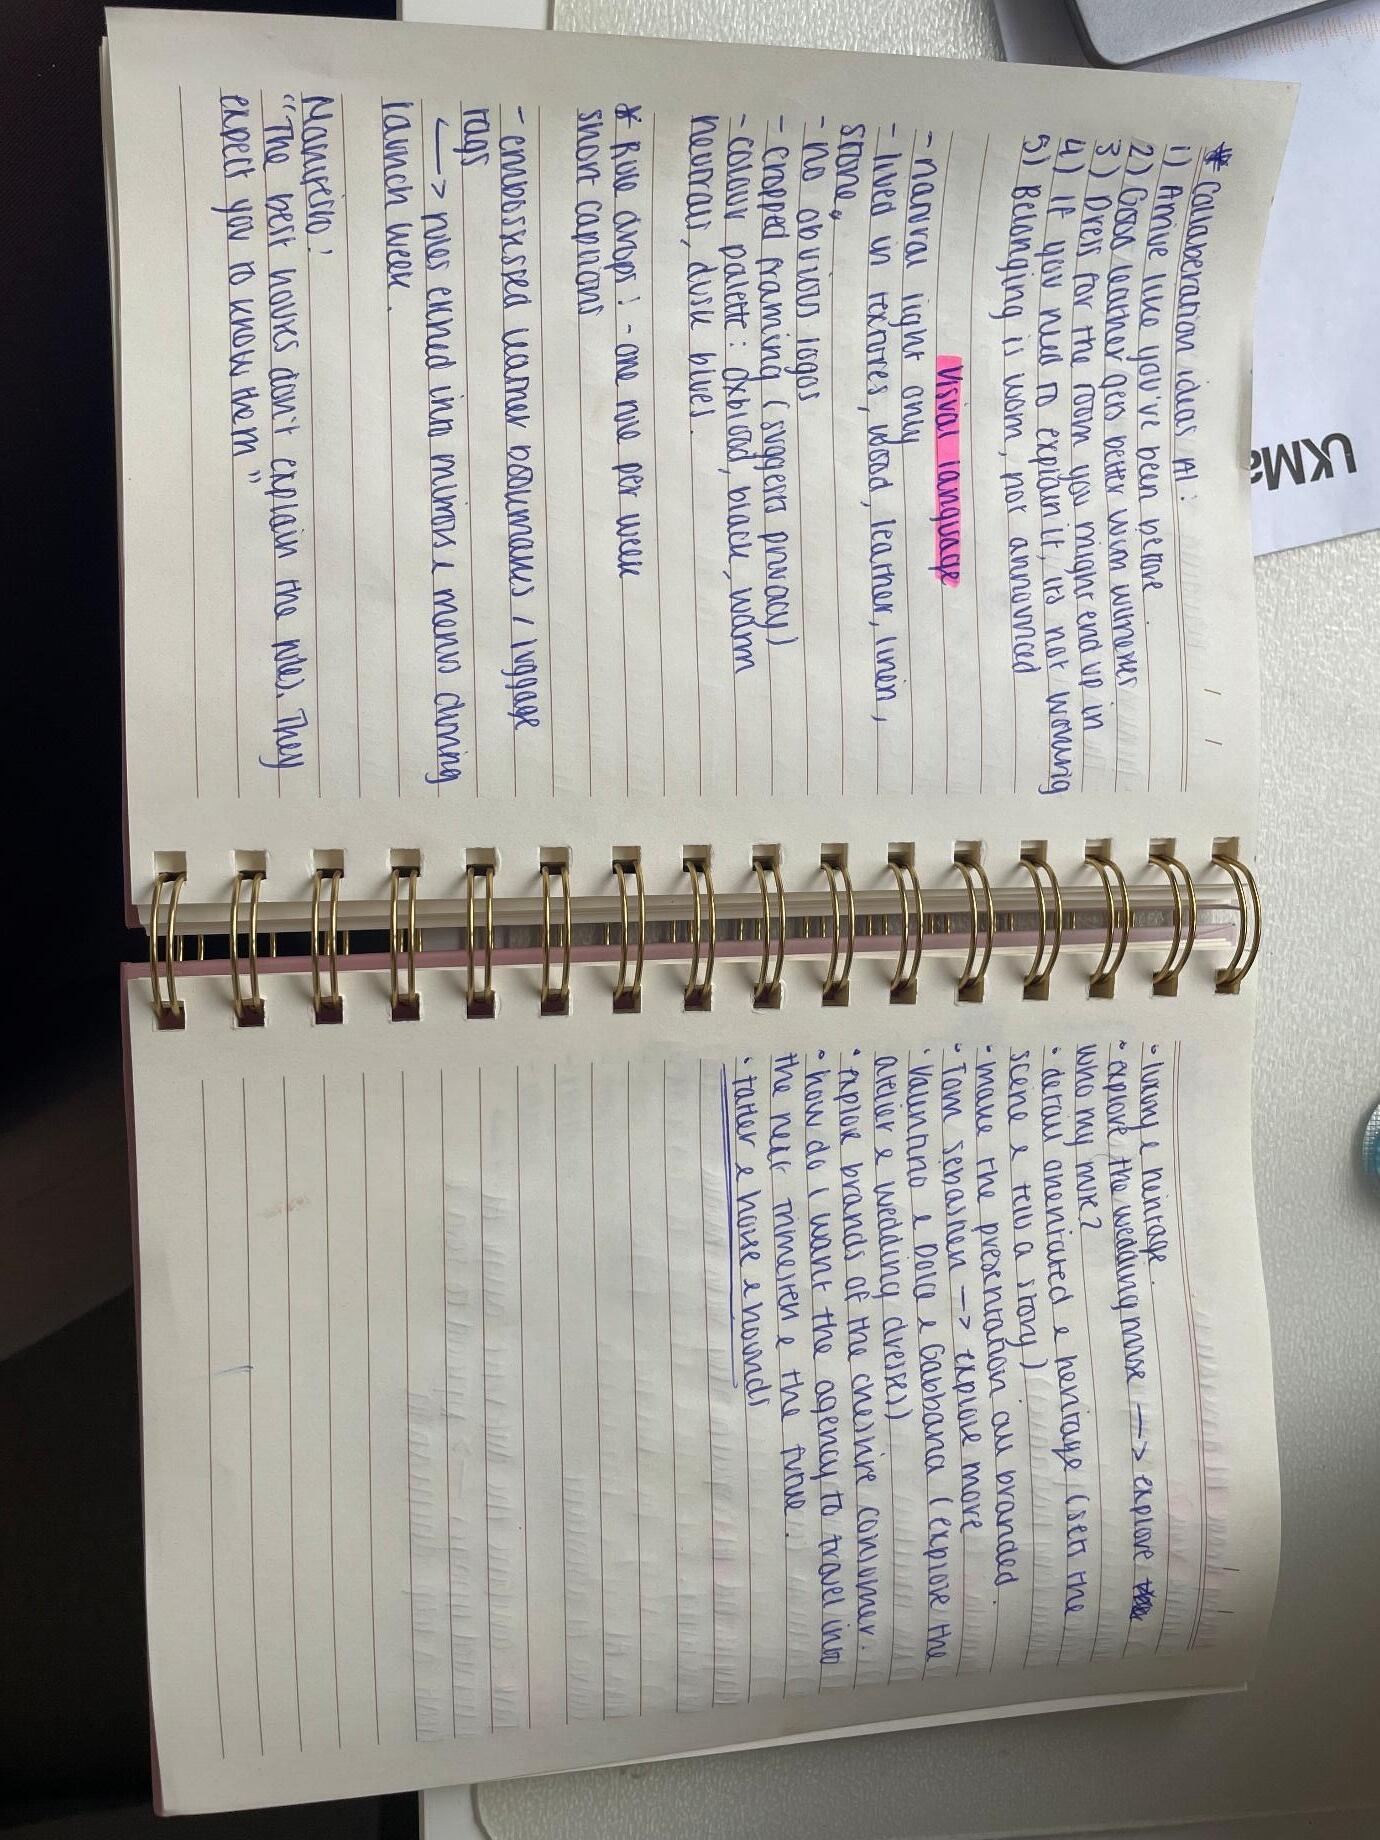 * Collaberation ideas AI:
1) Arrive like you've been before.
2) Good leather gets better with witnesses
3) Dress for the room you might end up in
4) If you need to explain it, its not working
5) Belonging is worn, not announced
Visual language
- natural light only
- lived in textures, wood, leather, linen,
stone,
- no obvious logos
- cropped framing (suggests privacy)
- colour palette: oxblood, black, warm
neutrals, dusk blues.
* Rule drops! - one rule per week
short captions
- embossed leather bookmarks / luggage
tags
⟶ rules etched into mirrors & menus during
launch week.
Manifesto!
"The best houses don't explain the rules. They
expect you to know them"
UKMa
• luxury & heritage.
• explore the wedding muse ⟶ explore
who my muse?
• detail orientated & heritage (sets the
scene & tells a story)
• make the presentation all branded.
• Tom sebastien ⟶ explore more
• Valentino & Dolce & Gabbana (explore the
atelier & wedding dresses)
• explore brands of the cheshire consumer.
• how do I want the agency to travel into
the next trimester & the future.
• tatler & horse & hounds